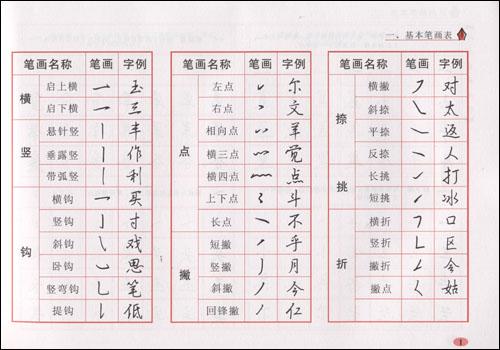 一、基本笔画表
笔画名称 笔画 字例
横
启上横 一 玉
启下横 一 三
竖
悬针竖 丨 丰
垂露竖 丨 作
带弧竖 丨 利
钩
横钩 买
竖钩 亅 寸
斜钩 戏
卧钩 思
竖弯钩 乚 笔
提钩 低
笔画名称 笔画 字例
点
左点 尔
右点 文
相向点 羊
横三点 觉
横四点 点
上下点 斗
长点 不
撇
短撇 乎
竖撇 月
斜撇 今
回锋撇 仁
笔画名称 笔画 字例
捺
横撇 对
斜捺 太
平捺 返
反捺 人
挑
长挑 打
短挑 冰
折
横折 口
竖折 区
撇折 令
撇点 姑
1